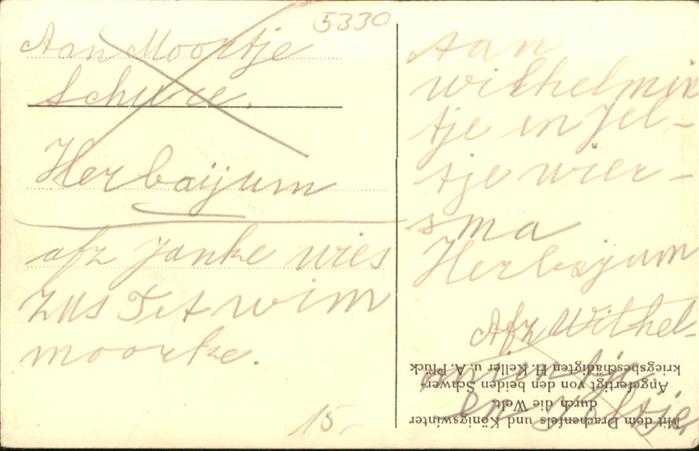 5330
Aan Moortje
Schure.
Herbaijum
afz Janke wies
zus Tet wim
moorke.
15,-
Aan
wilhelmin
tje en Jel-
tje wier-
sma
Herbajum
Afz Wilhel-
mientje
en Jeltsje,
Mit dem Drachenfels und Königswinter
durch die Welt.
Angefertigt von den beiden Schwer-
kriegsbeschädigten H. Keller u. A. Pluck